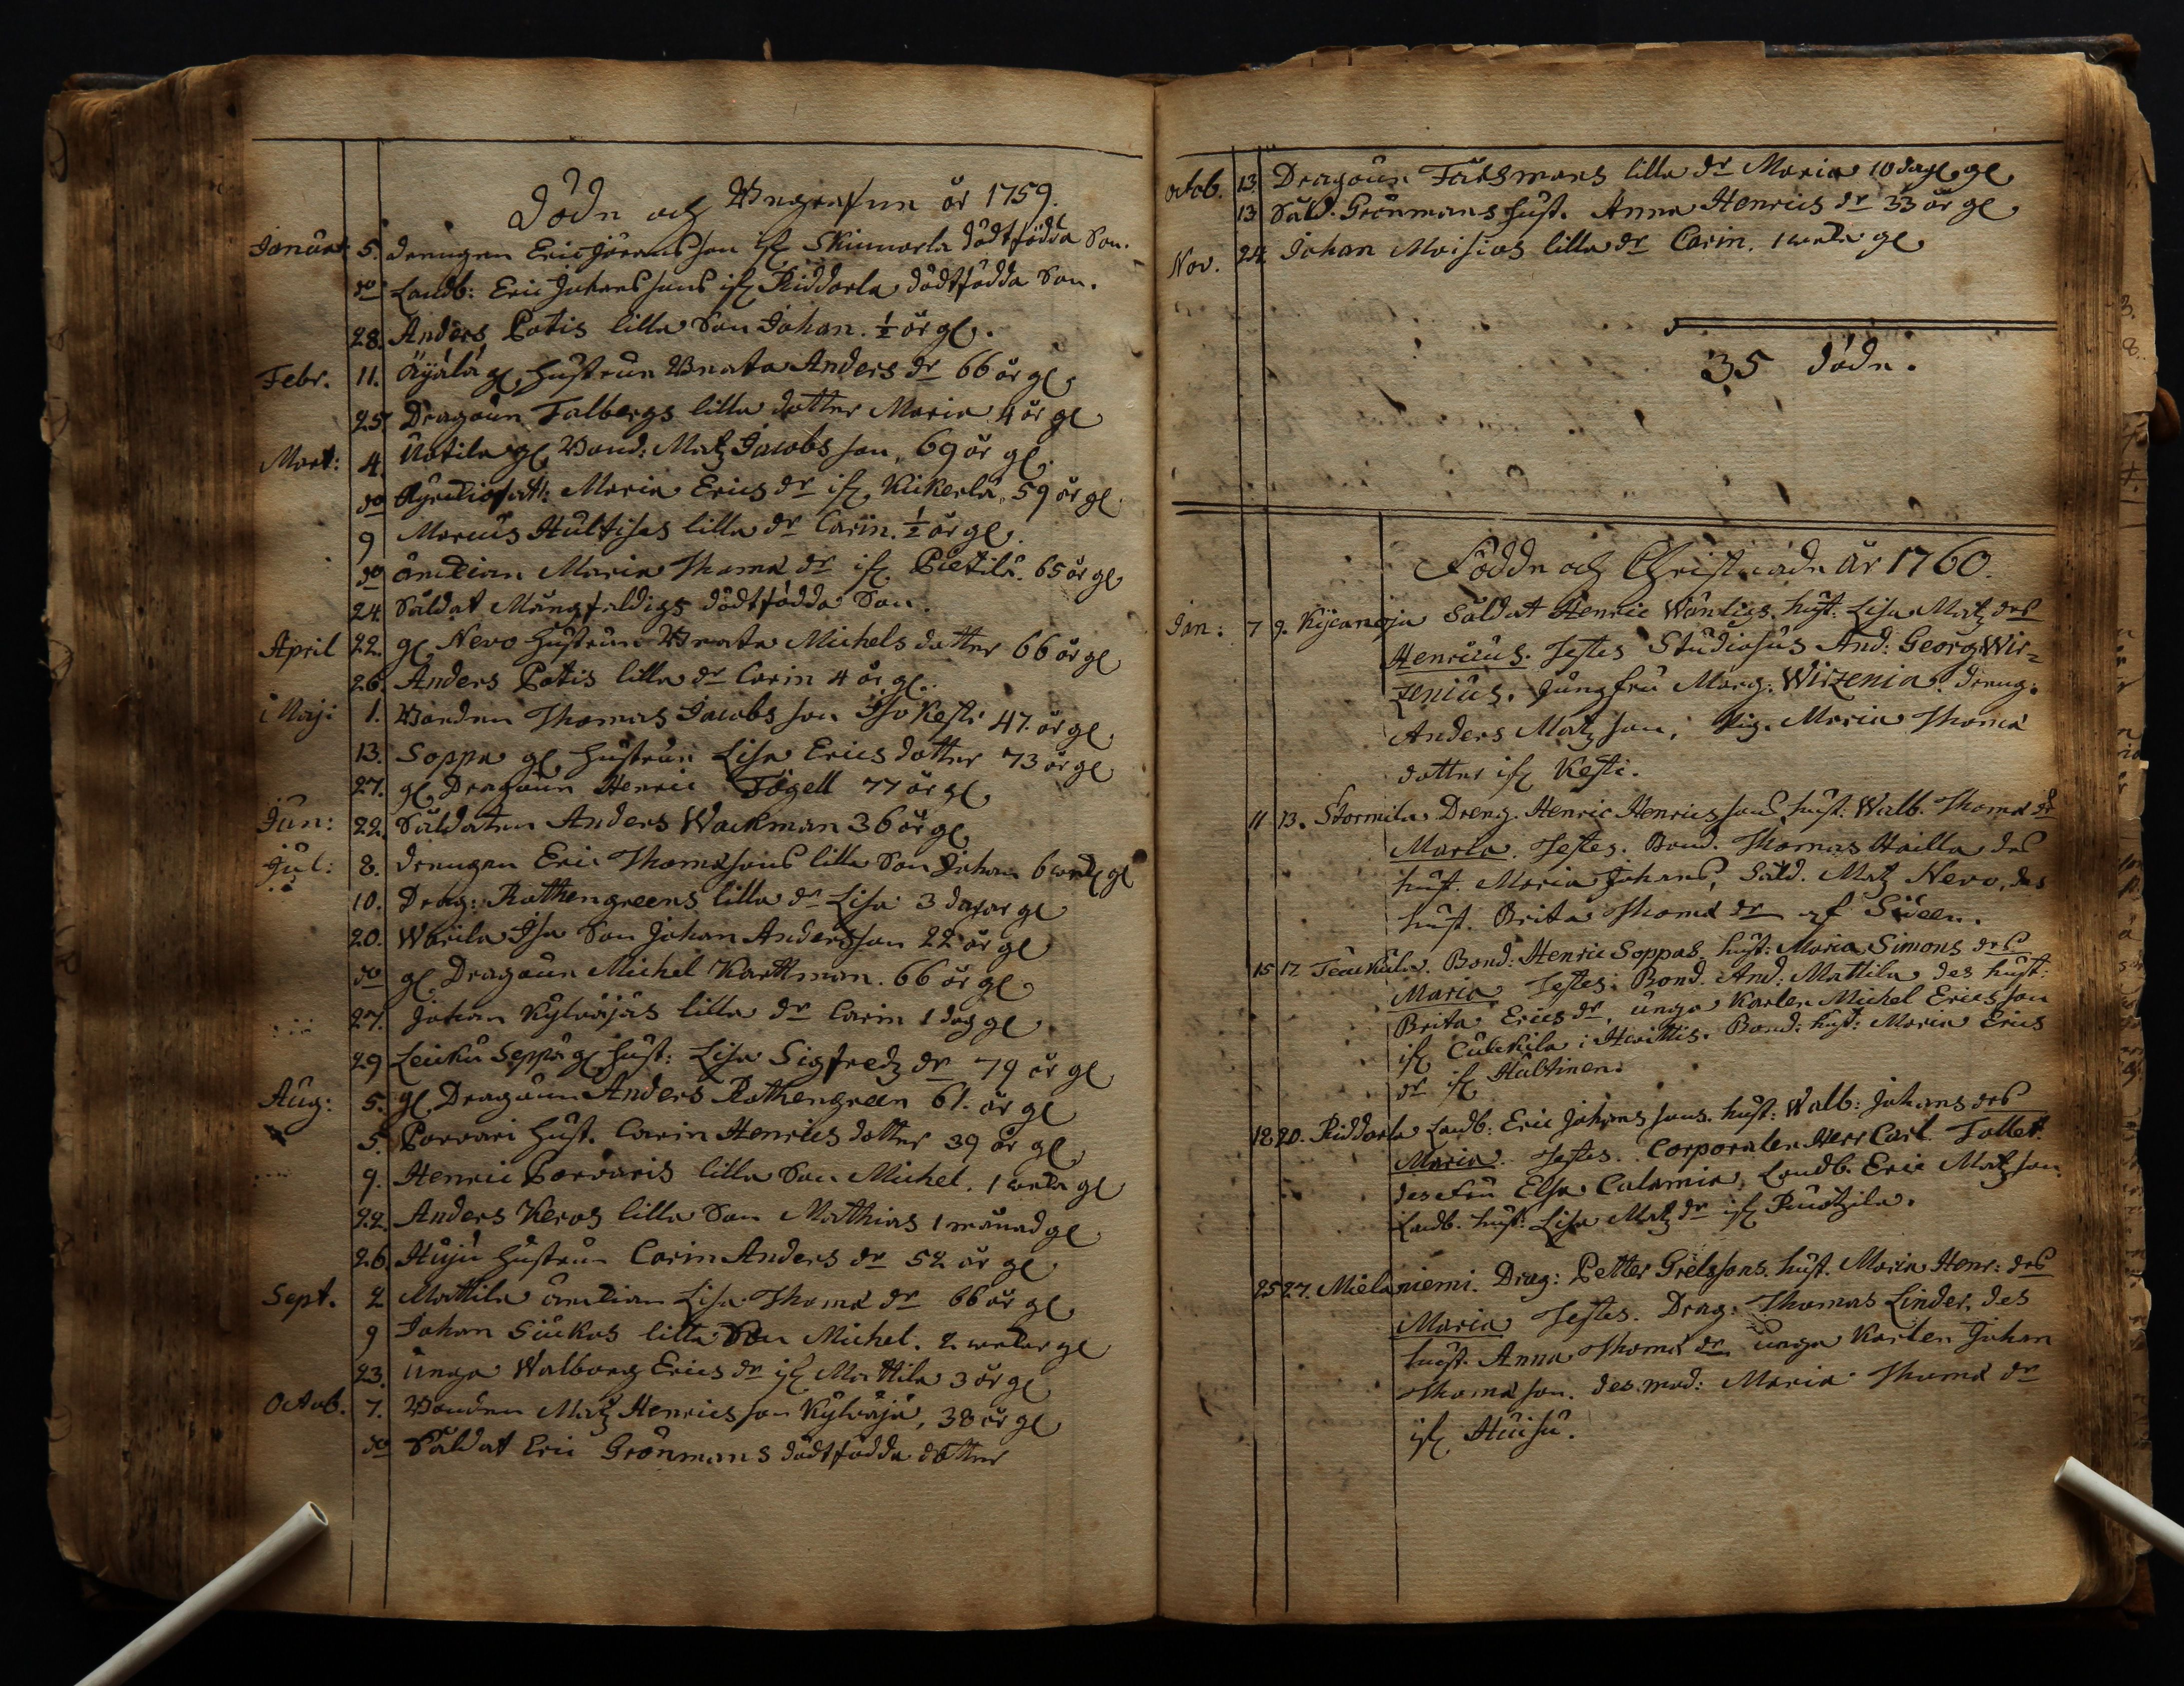 Döde och Begrafne år 1759.
Januar 5. Drengen Eric Jörans son if Skinnarla dödfödda Son.
do Landb: Eric Johans sons if Riddarla dödfödda Son.
28. Anders Potis lilla Son Johan. ½ år gl.
Febr. 11. Äyälä gl. hustrun Beata Anders dr 66 år gl.
25. Dragoun Falbergs lilla dotter Maria 4 år gl
Mart: 4. Uotila gl. Bond: Matz Jacobs son, 69 år gl.
do Maria Erics dr if Kikerlä, 59 år gl.
9 Marcus Hultisas lilla dr Carin. ½ år gl.
do Änckian Maria Thomæ dr if Pietilä. 65 år gl
24. Såldat Mångfaldigs dödfödda Son.
April 22. gl. Nevo hustrun Beata Michels dotter 66 år gl
26. Anders Potis lilla dr Carin 4 år gl.
Maji 1. Bonden Thomas Jacobs son Iso Kesti 47. år gl.
13. Soppa gl. hustrun Lisa Erics dotter 73 år gl
27. gl. Dragoun Henric Fogell 77 år gl.
Jun: 22. Såldaten Anders Wackman 36 år gl.
Jul: 8. Drengen Eric Thomæ sons lilla Son Johan 6 wek gl
10. Drag: Rothengreens lilla dr Lisa 3 dagar gl
20. Warila Isa Son Johan Andersson 22 år gl
do gl. Dragoun Michel Karttman. 66 år gl.
27. Johan Kylväjäs lilla dr Carin 1 dag gl.
29 Leucku Seppä gl. hust: Lisa Sigfredz dr 79 år gl
Aug: 5. gl. Dragoun Anders Rothengreen 61. år gl
5. Porvari hust. Carin Henrics dotter 39 år gl.
9. Henric Porvaris lilla Son Michel. 1 weka gl
22. Anders Keros lilla Son Mathias 1 månad gl.
26. Huju hustrun Carin Anders dr 52 år gl
Sept. 2 Mattila änckian Lisa Thomæ dr 66 år gl
9 Johan Siukos lilla Son Michel. 2 wekor gl
23. Unga Walborg Erics dr if Mattila 3 år gl
Octob. 7. Bonden Matz Henrics son Kylväjä, 38 år gl
do Såldat Eric Grönmans dödfödda dotter
octob. 13. Dragoun Farsmans lilla dr Maria 10 dag. gl.
13 Såld. Grönmans hust. Anna Henrics dr 33 år gl.
Nov. 24. Johan Moisios lilla dr Carin. 1 weka gl
35 döde.
Födde och Christnade År 1760.
Jan: 7 9. Kijcanoja Såldat Henric Wänligs. hust: Lisa Matz drs
Henricus. Testes Studiosus And: Georg Wir=
zenius. Jungfru Marg: Wirzenia. dreng.
Anders Matz son, Pig. Maria Thomæ
dotter if Kesti.
11 13. Stormila Dreng. Henric Henrics sons hust: Walb. Thomæ drs
Maria. Testes. Bond. Thomas Hailla des
hust. Maria Johans, Såld. Matz Nevo, des
hust. Brita Thomæ dr if Siveen.
15 17. Teuckula. Bond: Henric Soppas. hust: Maria Simons drs
Maria Testes: Bond. And: Mattila des hust:
Brita Erics dr, unga Karlen Michel Ericsson
if Cuckila i Hvittis. Bond: hust: Maria Erics
dr if Hultinen.
18 20. Riddarla Landb: Eric Johans sons. hust: Walb: Johans drs
Maria. Testes. Corporalen Herr Carl Tollet.
des Fru Elsa Calamia, Landb. Eric Matz son
Landb. hust: Lisa Matz dr if Puotzila.
25 27. Mielaniemi. Drag: Petter Grelssons. hust. Maria Henr: drs
Maria Testes. Drag: Thomas Linder, des
hust. Anna Thomæ dr unga Karlen Johan
Thomæ son. des mod: Maria Thomæ dr
if Huisu.